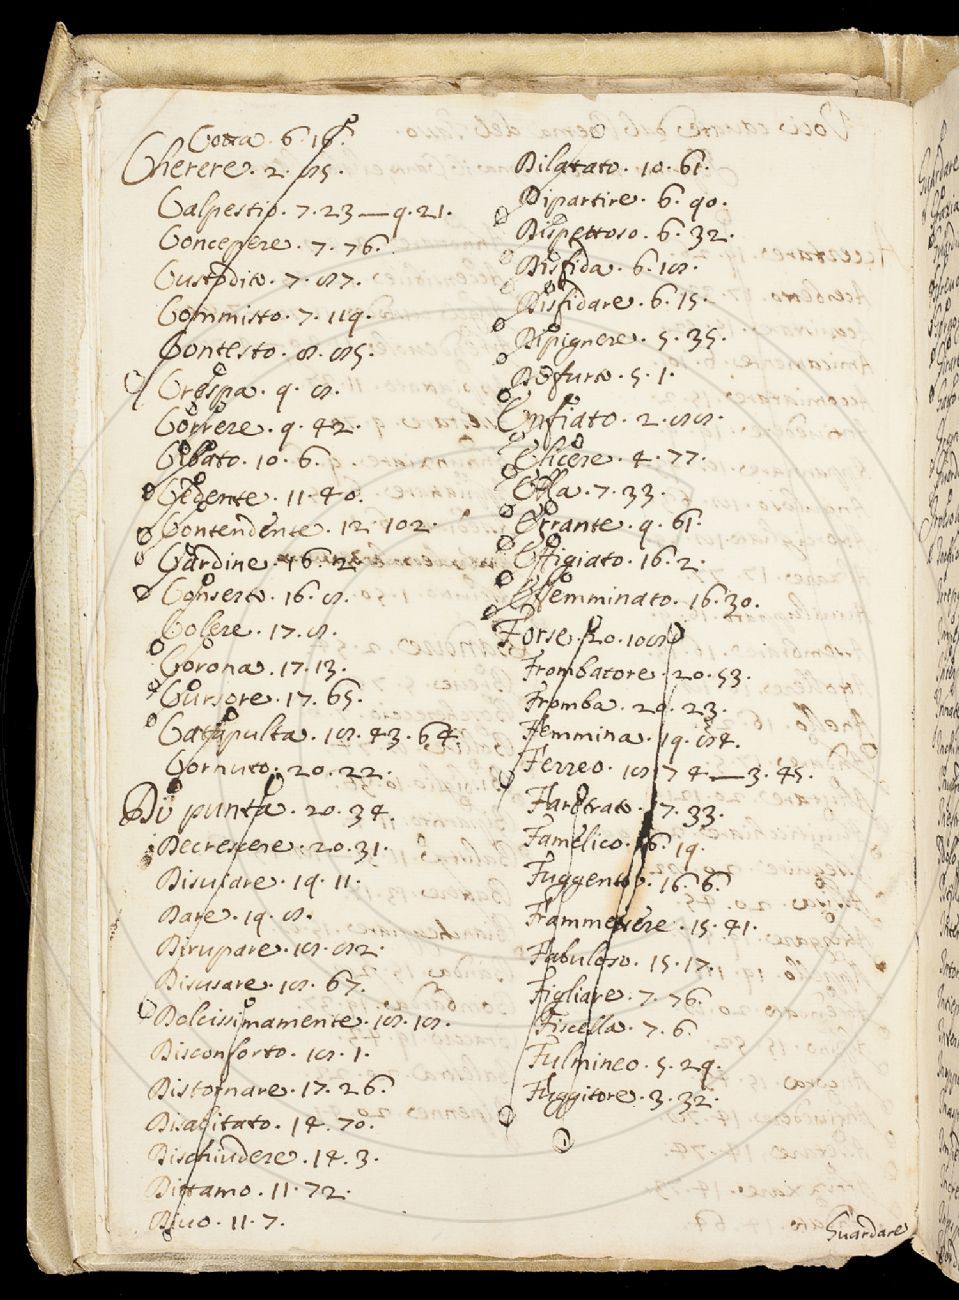 Cotta. 6. 18.
Cherere. 2. 85.
Calpestio. 7. 23 — 9. 21.
Concepere. 7. 76.
Custodito. 7. 87.
Commisto. 7. 119.
Contesto. 8. 85.
Crespa. 9. 8.
Correre. 9. 42.
Cibato. 10. 6.
Cedente. 11. 40.
Contendente. 12. 102.
Cardine. 16. 2.
Conserto. 16. 8.
Colere. 17. 8.
Corona. 17. 13.
Cursore. 17. 65.
Catapulta. 18. 43. 64.
Cornuto. 20. 22.
Di punta. 20. 34.
Decrescere. 20. 31.
Dare. 19. 8.
Dirupare. 18. 82.
Disusare. 18. 67.
Dolcissimamente. 18. 18.
Disconforto. 18. 1.
Distornare. 17. 26.
Disabitato. 14. 70.
Dischiudere. 14. 3.
Dittamo. 11. 72.
Divo. 11. 7.
Dilatato. 10. 61.
Dipartire. 6. 90.
Dispettoso. 6. 32.
Disfida. 6. 18.
Disfidare. 6. 15.
Dipignere. 5. 35.
De furto. 5. 1.
Enfiato. 2. 88.
Elicere. 4. 77.
Ella. 7. 33.
Errante. 9. 61.
Effigiato. 16. 2.
Effemminato. 16. 30.
Forse. 20. 108
Frombatore. 20. 53.
Fromba. 20. 23.
Femmina. 19. 84.
Ferreo. 18. 74 — 3. 45.
Faretrato. 17. 33.
Famelico. 16. 19.
Fuggento. 16. 6.
Frammettere. 15. 41.
Fabuloso. 15. 17.
Figliare. 7. 76.
Fiscella. 7. 6
Fulmineo. 5. 29.
Fuggitore. 3. 32.
Guardare